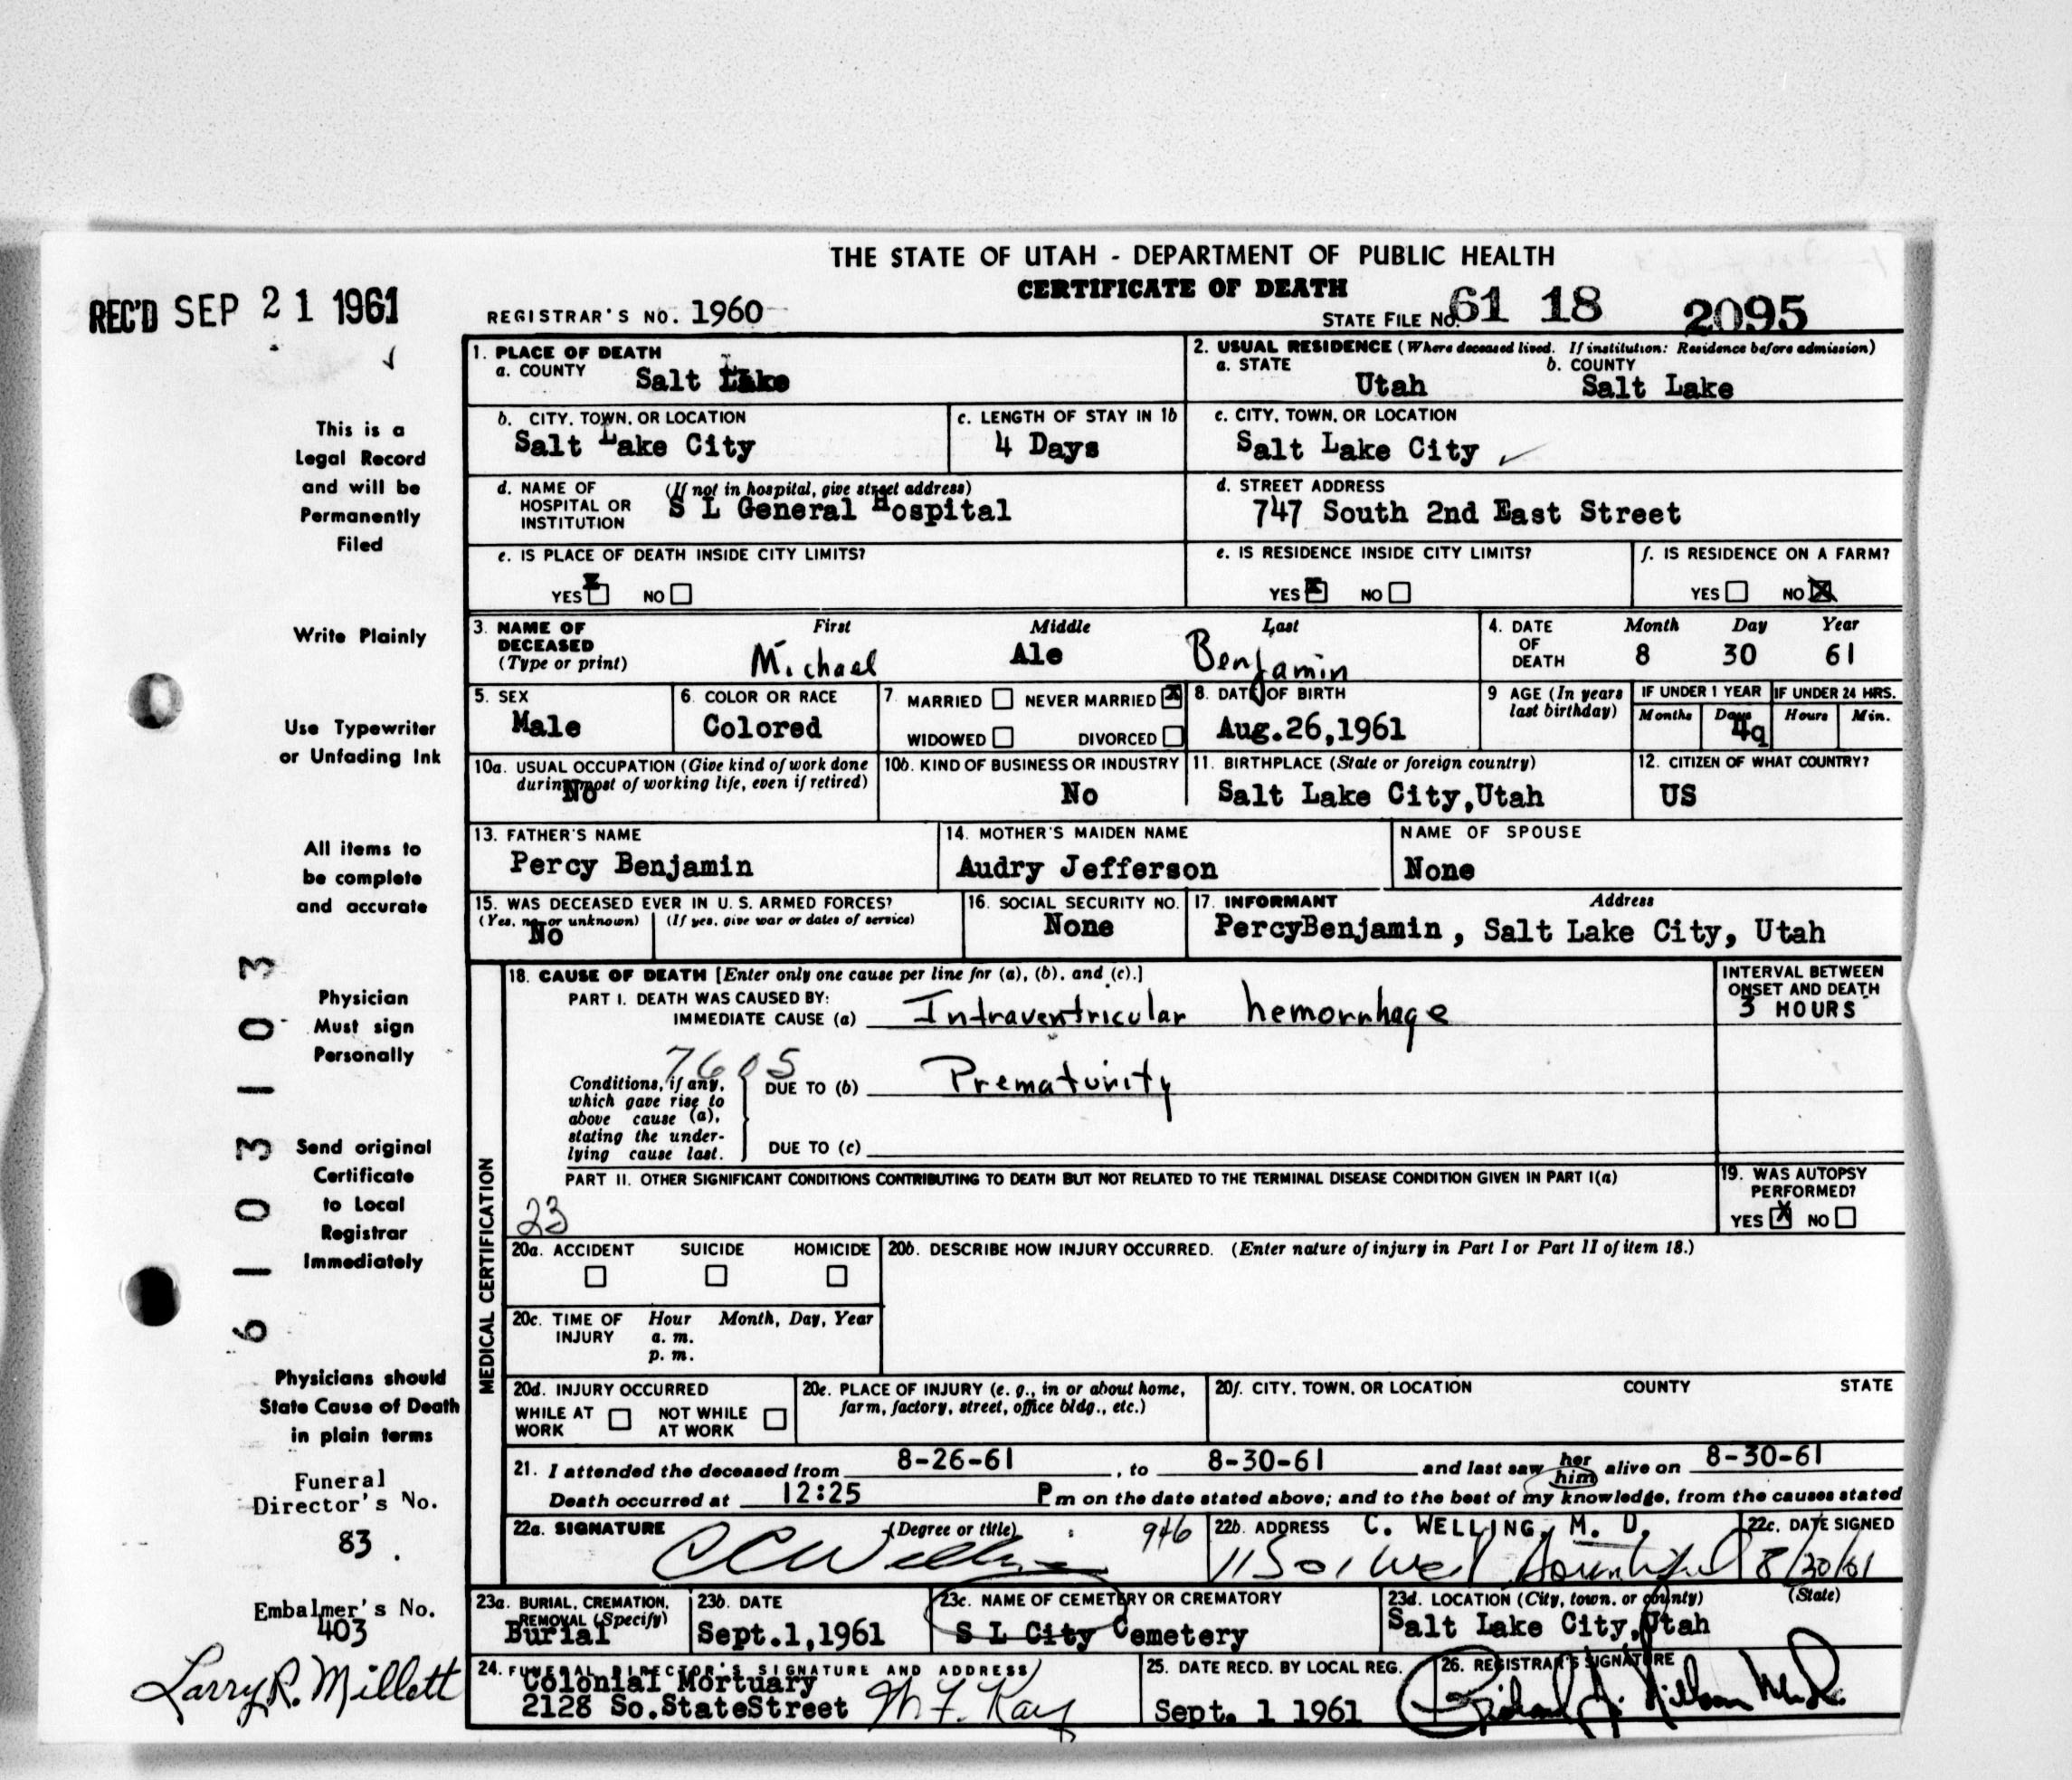 THE STATE OF UTAH - DEPARTMENT OF PUBLIC HEALTH
CERTIFICATE OF DEATH
REC'D SEP 21 1961
REGISTRAR'S NO. 1960
STATE FILE NO. 61 18 2095
1. PLACE OF DEATH
a. COUNTY Salt Lake
2. USUAL RESIDENCE (Where deceased lived. If institution: Residence before admission)
a. STATE Utah b. COUNTY Salt Lake
b. CITY, TOWN, OR LOCATION Salt Lake City
c. LENGTH OF STAY IN 1b 4 Days
c. CITY, TOWN, OR LOCATION Salt Lake City
d. NAME OF HOSPITAL OR INSTITUTION (If not in hospital, give street address) S L General Hospital
d. STREET ADDRESS 747 South 2nd East Street
e. IS PLACE OF DEATH INSIDE CITY LIMITS?
YES X NO
e. IS RESIDENCE INSIDE CITY LIMITS?
YES X NO
f. IS RESIDENCE ON A FARM?
YES NO X
3. NAME OF DECEASED (Type or print)
First Middle Last
Michael Ale Benjamin
4. DATE OF DEATH Month Day Year
8 30 61
5. SEX Male
6. COLOR OR RACE Colored
7. MARRIED NEVER MARRIED X
WIDOWED DIVORCED
8. DATE OF BIRTH Aug.26,1961
9 AGE (In years last birthday)
IF UNDER 1 YEAR IF UNDER 24 HRS.
Months Days Hours Min.
4
10a. USUAL OCCUPATION (Give kind of work done during most of working life, even if retired) No
10b. KIND OF BUSINESS OR INDUSTRY No
11. BIRTHPLACE (State or foreign country) Salt Lake City,Utah
12. CITIZEN OF WHAT COUNTRY? US
13. FATHER'S NAME Percy Benjamin
14. MOTHER'S MAIDEN NAME Audry Jefferson
NAME OF SPOUSE None
15. WAS DECEASED EVER IN U. S. ARMED FORCES?
(Yes, no, or unknown) (If yes, give war or dates of service)
No
16. SOCIAL SECURITY NO. None
17. INFORMANT Address
PercyBenjamin, Salt Lake City, Utah
MEDICAL CERTIFICATION
18. CAUSE OF DEATH [Enter only one cause per line for (a), (b), and (c).]
PART I. DEATH WAS CAUSED BY:
IMMEDIATE CAUSE (a) Intraventricular hemorrhage
INTERVAL BETWEEN ONSET AND DEATH
3 HOURS
Conditions, if any, which gave rise to above cause (a), stating the underlying cause last.
DUE TO (b) Prematurity
DUE TO (c)
PART II. OTHER SIGNIFICANT CONDITIONS CONTRIBUTING TO DEATH BUT NOT RELATED TO THE TERMINAL DISEASE CONDITION GIVEN IN PART I(a)
23
19. WAS AUTOPSY PERFORMED?
YES X NO
20a. ACCIDENT SUICIDE HOMICIDE
20b. DESCRIBE HOW INJURY OCCURRED. (Enter nature of injury in Part I or Part II of item 18.)
20c. TIME OF INJURY Hour Month, Day, Year
a. m.
p. m.
20d. INJURY OCCURRED
WHILE AT WORK NOT WHILE AT WORK
20e. PLACE OF INJURY (e. g., in or about home, farm, factory, street, office bldg., etc.)
20f. CITY, TOWN, OR LOCATION COUNTY STATE
21. I attended the deceased from 8-26-61, to 8-30-61 and last saw her him alive on 8-30-61
Death occurred at 12:25 Pm on the date stated above; and to the best of my knowledge, from the causes stated
22a. SIGNATURE (Degree or title) 946
22b. ADDRESS C. WELLING, M. D.
22c. DATE SIGNED 8/30/61
23a. BURIAL, CREMATION, REMOVAL (Specify) Burial
23b. DATE Sept.1,1961
23c. NAME OF CEMETERY OR CREMATORY S L City Cemetery
23d. LOCATION (City, town, or county) (State) Salt Lake City,Utah
24. FUNERAL DIRECTOR'S SIGNATURE AND ADDRESS
Colonial Mortuary
2128 So.StateStreet M F. Kay
25. DATE RECD. BY LOCAL REG. Sept. 1 1961
26. REGISTRAR'S SIGNATURE
This is a
Legal Record
and will be
Permanently
Filed
Write Plainly
Use Typewriter
or Unfading Ink
All items to
be complete
and accurate
Physician
Must sign
Personally
Send original
Certificate
to Local
Registrar
Immediately
Physicians should
State Cause of Death
in plain terms
Funeral
Director's No.
83
Embalmer's No.
403
Larry R. Millett
61031103